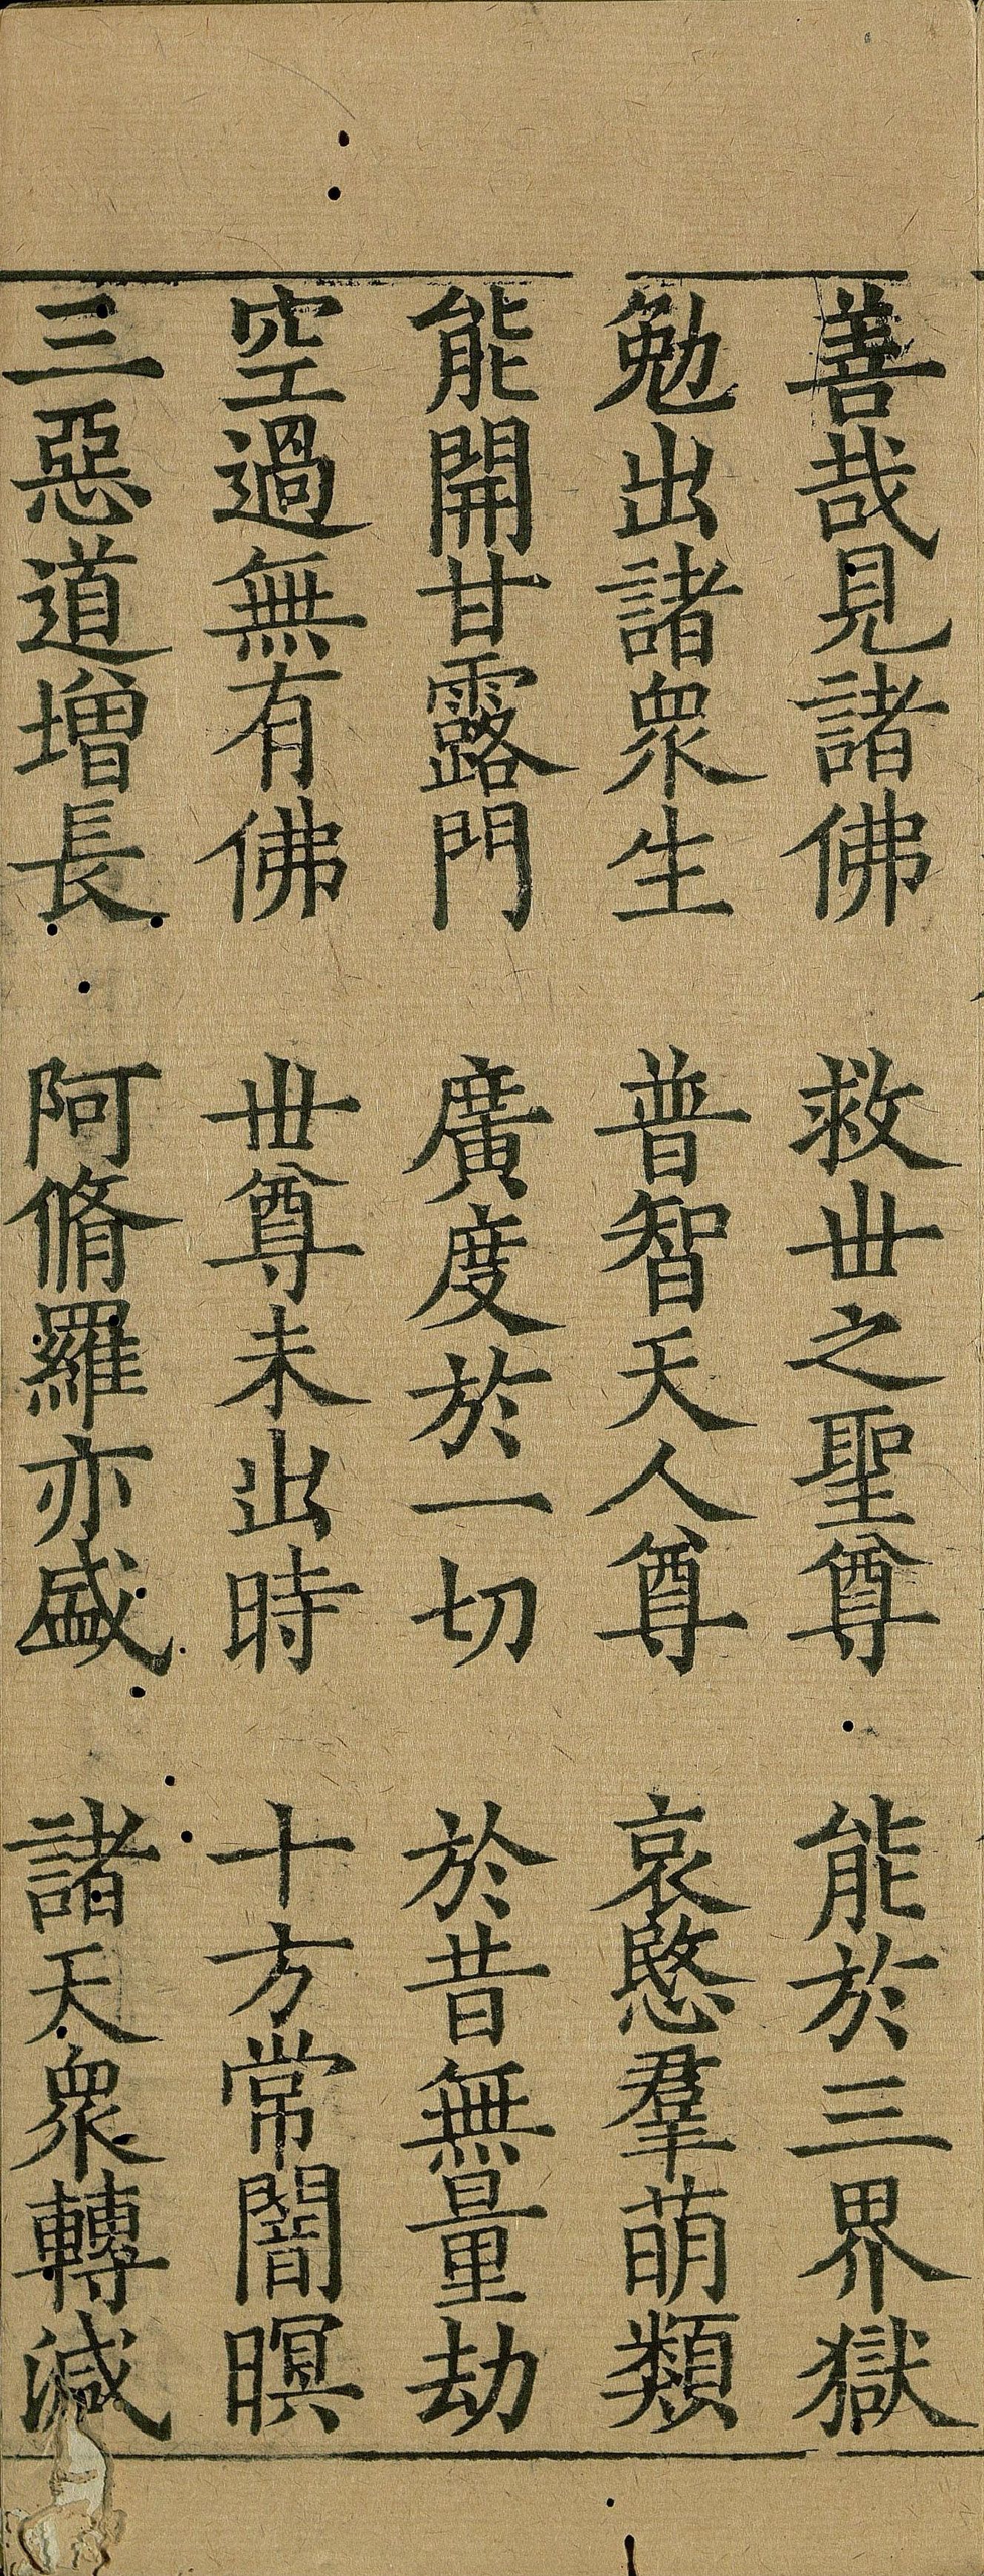 善哉見諸佛　救世之聖尊　能於三界獄
勉出諸衆生　普智天人尊　哀愍羣萌類
能開甘露門　廣度於一切　於昔無量劫
空過無有佛　世尊未出時　十方常闇暝
三惡道增長　阿脩羅亦盛　諸天衆轉減